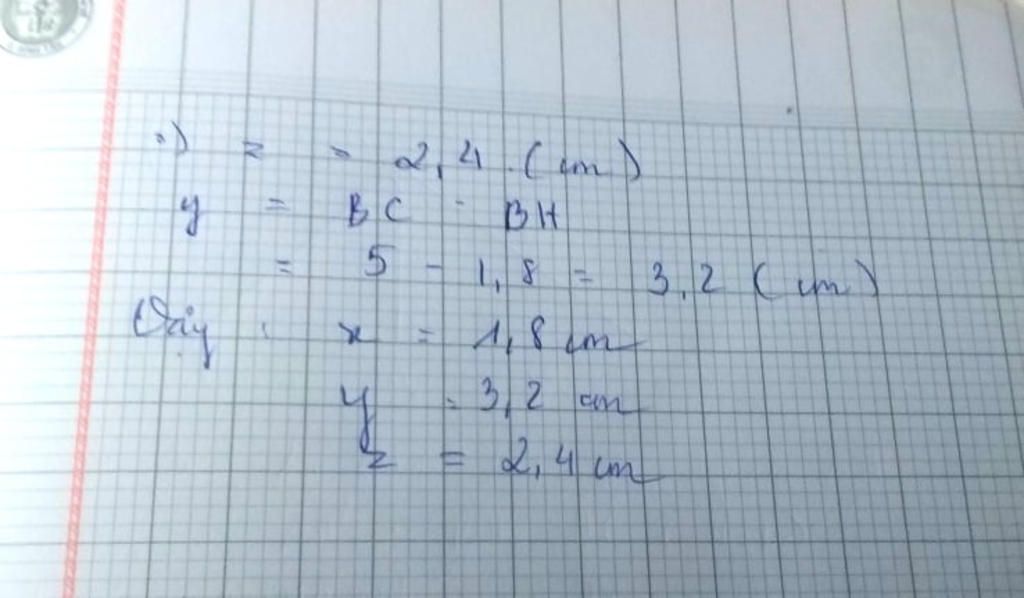 =) z = 2,4 (cm)
y = BC - BH
= 5 - 1,8 = 3,2 (cm)
Vậy : x = 1,8 cm
y = 3,2 cm
z = 2,4 cm